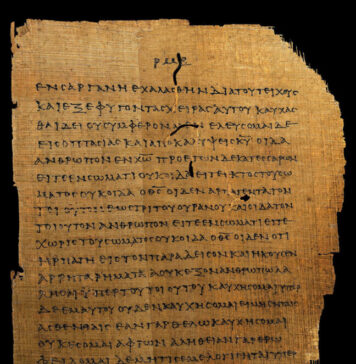 ΕΝ ϹΑΡΓΑΝΗ ΕΧΑΛΑϹΘΗΝ ΔΙΑ ΤΟΥ ΤΕΙΧΟΥϹ
ΚΑΙ ΕΞΕΦΥΓΟΝ ΤΑϹ ΧΕΙΡΑϹ ΑΥΤΟΥ ΚΑΥΧΑϹ
ΘΑΙ ΔΕΙ ΟΥ ϹΥΜΦΕΡΟΝ ΕΛΕΥϹΟΜΑΙ ΔΕ
ΕΙϹ ΟΠΤΑϹΙΑϹ ΚΑΙ ΑΠΟΚΑΛΥΨΕΙϹ Κ̅Υ̅ ΟΙΔΑ
ΑΝΘΡΩΠΟΝ ΕΝ Χ̅Ω̅ ΠΡΟ ΕΤΩΝ ΔΕΚΑΤΕϹϹΑΡΩΝ
ΕΙΤΕ ΕΝ ϹΩΜΑΤΙ ΟΥΚ ΟΙΔΑ ΕΙΤΕ ΕΚΤΟϹ ΤΟΥ ϹΩ
ΜΑΤΟϹ ΟΥΚ ΟΙΔΑ Ο Θ̅Ϲ̅ ΟΙΔΕΝ ΑΡΠΑΓΕΝΤΑ ΤΟΝ
ΤΟΙΟΥΤΟΝ ΕΩϹ ΤΡΙΤΟΥ ΟΥΡΑΝΟΥ ΚΑΙ ΟΙΔΑ ΤΟΝ
ΤΟΙΟΥΤΟΝ ΑΝΘΡΩΠΟΝ ΕΙΤΕ ΕΝ ϹΩΜΑΤΙ ΕΙΤΕ
ΧΩΡΙϹ ΤΟΥ ϹΩΜΑΤΟϹ ΟΥΚ ΟΙΔΑ Ο Θ̅Ϲ̅ ΟΙΔΕΝ ΟΤΙ
ΗΡΠΑΓΗ ΕΙϹ ΤΟΝ ΠΑΡΑΔΕΙϹΟΝ ΚΑΙ ΗΚΟΥϹΕΝ
ΑΡΡΗΤΑ ΡΗΜΑΤΑ Α ΟΥΚ ΕΞΟΝ ΑΝΘΡΩΠΩ ΛΑ
ΛΗϹΑΙ ΥΠΕΡ ΤΟΥ ΤΟΙΟΥΤΟΥ ΚΑΥΧΗϹΟΜΑΙ ΥΠΕΡ
ΔΕ ΕΜΑΥΤΟΥ ΟΥΔΕΝ ΚΑΥΧΗϹΟΜΑΙ ΕΙ ΜΗ ΕΝ ΤΑΙϹ
ΑϹΘΕΝΕΙΑΙϹ ΕΑΝ ΓΑΡ ΘΕΛΩ ΚΑΥΧΗϹΟΜΑΙ
ΟΥΚ ΕϹΟΜΑΙ ΑΦΡΩΝ ΑΛΗΘΕΙΑΝ ΓΑΡ ΕΡΩ
ΦΕΙΔΟΜΑΙ ΔΕ ΜΗ ΤΙϹ ΕΜΕ ΛΟΓΙϹΗΤΑΙ ΥΠΕΡ